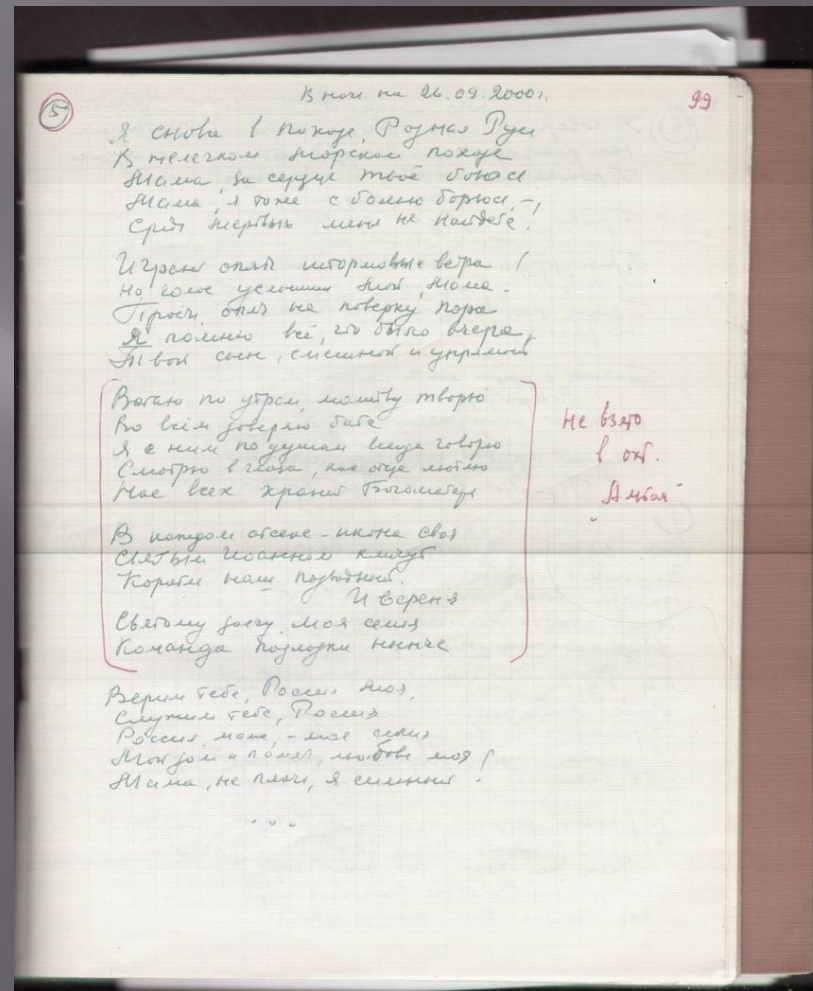 В ночь на 26.09.2000г.
5
99
Я снова в походе, Родная Русь
В нелегком морском походе
Мама, за сердце твоё боюсь
Мама, я тоже с болью борюсь, –
Средь мёртвых меня не найдёте!
Играют опять штормовые ветра!
Но голос услышим мой, мама.
Прости, опять на поверку пора
Я помню всё, что было вчера,
Твой сын, смешной и упрямый
Встаю по утрам, молитву творю
Во всём доверяю бате
Я с ним по душам всегда говорю
Смотрю в глаза, как отца люблю
Нас всех хранит Богоматерь
Не взято
в окт.
В каждом отсеке – икона своя
Святым Иоанном кличут
Корабль наш подводный.
И верен я
Святому долгу. Моя семья
Команда подлодки нынче
Верим тебе, Россия моя,
Служим тебе, Россия
Россия, мама, – моя семья
Мой дом и память, любовь моя!
Мама, не плачь, я сильный!
...